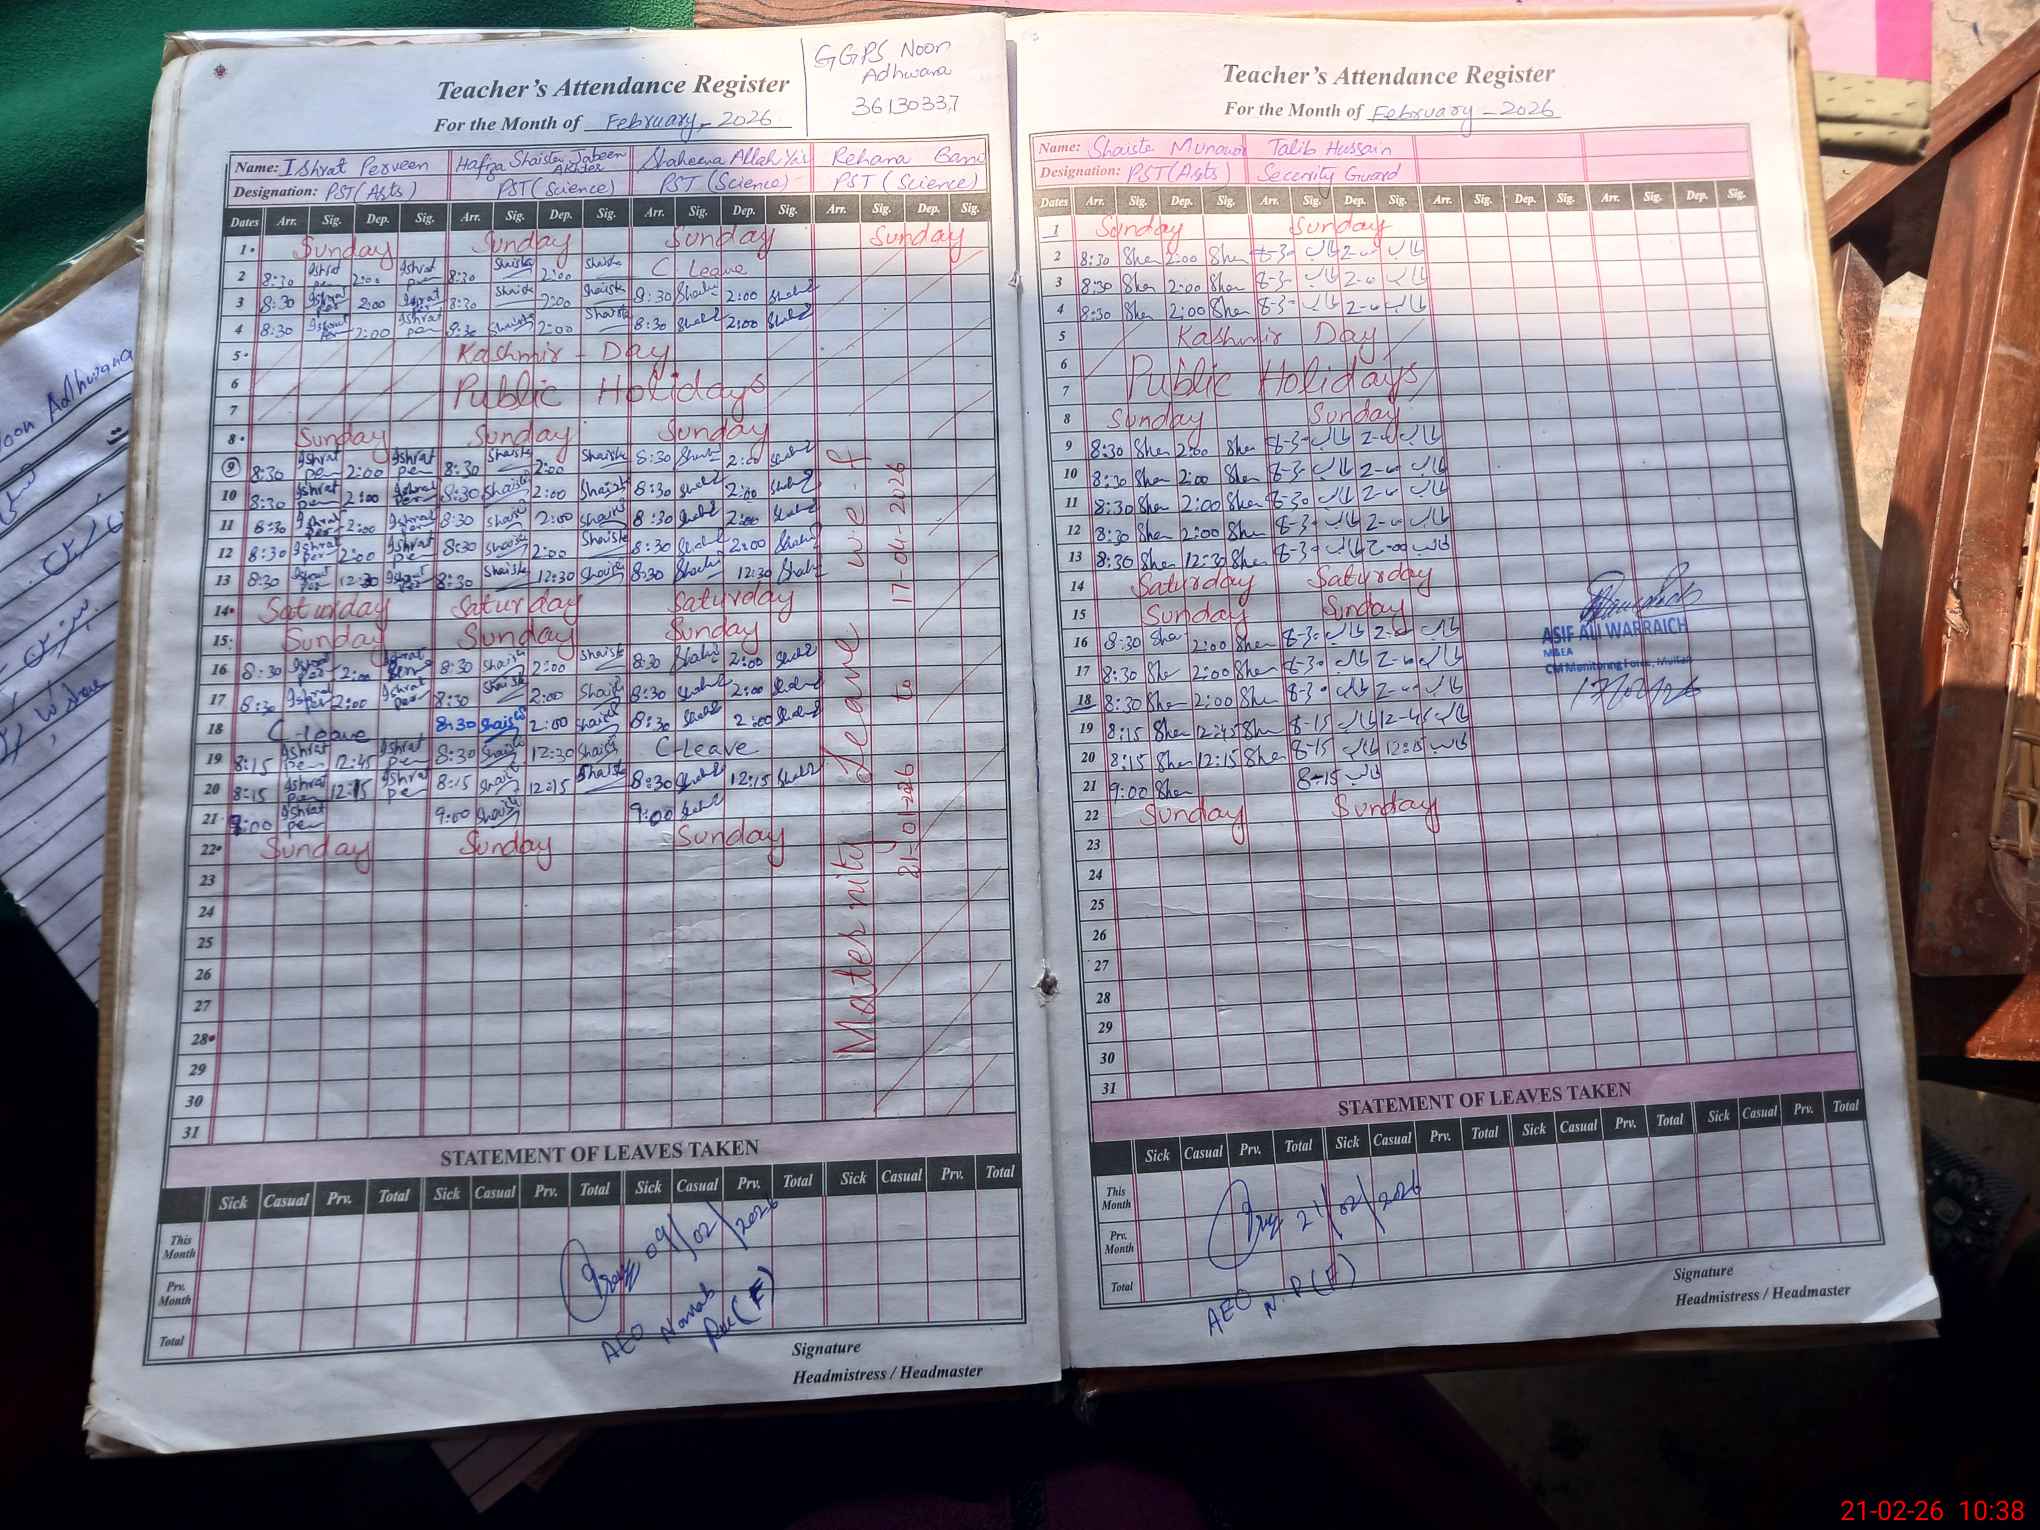 GGPS Noon
Adhwana
36130337
Teacher's Attendance Register
For the Month of February, 2026
Name: Ishrat Perveen Hafiza Shaista Jabeen Akhter Shaheena Allah Yar Rehana
Designation: PST(Arts) PST(Science) PST (Science) PST (Science)
Dates Arr. Sig. Dep. Sig. Arr. Sig. Dep. Sig. Arr. Sig. Dep. Sig. Arr. Sig. Dep. Sig.
1 Sunday Sunday Sunday Sunday
2 8:30 Ishrat per 2:00 Ishrat per 8:30 Shaista 2:00 Shaista C Leave
3 8:30 Ishrat per 2:00 Ishrat per 8:30 Shaista 2:00 Shaista 8:30 2:00
4 8:30 Ishrat per 2:00 Ishrat per 8:30 Shaista 2:00 Shaista 8:30 2:00
5 Kashmir - Day
6 Public Holidays
7
8 Sunday Sunday Sunday
9 8:30 Ishrat per 2:00 Ishrat per 8:30 Shaista 2:00 Shaista 8:30 2:00
10 8:30 Ishrat per 2:00 Ishrat per 8:30 Shaista 2:00 Shaista 8:30 2:00
11 8:30 Ishrat per 2:00 Ishrat per 8:30 Shaista 2:00 Shaista 8:30 2:00
12 8:30 Ishrat per 2:00 Ishrat per 8:30 Shaista 2:00 Shaista 8:30 2:00
13 8:30 Ishrat per 12:30 Ishrat per 8:30 Shaista 12:30 Shaista 8:30 12:30
14 Saturday Saturday Saturday
15 Sunday Sunday Sunday
16 8:30 Ishrat per 2:00 Ishrat per 8:30 Shaista 2:00 Shaista 8:30 2:00
17 8:30 Ishrat per 2:00 Ishrat per 8:30 Shaista 2:00 Shaista 8:30 2:00
18 C-leave 8:30 Shaista 2:00 Shaista 8:30 2:00
19 8:15 Ishrat per 12:45 Ishrat per 8:30 Shaista 12:30 Shaista C-Leave
20 8:15 Ishrat per 12:15 Ishrat per 8:15 Shaista 12:15 Shaista 8:30 12:15
21 9:00 Ishrat per 9:00 Shaista 9:00
22 Sunday Sunday Sunday
23
24
25
26
27
28
29
30
31
Maternity Leave we-f
21-01-2026 to 17-04-2026
STATEMENT OF LEAVES TAKEN
Sick Casual Prv. Total Sick Casual Prv. Total Sick Casual Prv. Total Sick Casual Prv. Total
This Month
Prv. Month
Total
09/02/2026
AEO
(F)
Signature
Headmistress / Headmaster
Teacher's Attendance Register
For the Month of February - 2026
Name: Shaista Munawar Talib Hussain
Designation: PST(Arts) Security Guard
Dates Arr. Sig. Dep. Sig. Arr. Sig. Dep. Sig. Arr. Sig. Dep. Sig. Arr. Sig. Dep. Sig.
1 Sunday Sunday
2 8:30 Shen 2:00 Shen 8-30 طالب 2-00 طالب
3 8:30 Shen 2:00 Shen 8-30 طالب 2-00 طالب
4 8:30 Shen 2:00 Shen 8-30 طالب 2-00 طالب
5 Kashmir Day
6 Public Holidays
7
8 Sunday Sunday
9 8:30 Shen 2:00 Shen 8-30 طالب 2-00 طالب
10 8:30 Shen 2:00 Shen 8-30 طالب 2-00 طالب
11 8:30 Shen 2:00 Shen 8-30 طالب 2-00 طالب
12 8:30 Shen 2:00 Shen 8-30 طالب 2-00 طالب
13 8:30 Shen 12:30 Shen 8-30 طالب 2-00 طالب
14 Saturday Saturday
15 Sunday Sunday
16 8:30 Shen 2:00 Shen 8-30 طالب 2-00 طالب
17 8:30 Shen 2:00 Shen 8-30 طالب 2-00 طالب
18 8:30 Shen 2:00 Shen 8-30 طالب 2-00 طالب
19 8:15 Shen 12:45 Shen 8-15 طالب 12-45 طالب
20 8:15 Shen 12:15 Shen 8-15 طالب 12:15 طالب
21 9:00 Shen 8-15 طالب
22 Sunday Sunday
23
24
25
26
27
28
29
30
31
ASIF ALI WARRAICH
MEA
CM Monitoring Force, Multan
STATEMENT OF LEAVES TAKEN
Sick Casual Prv. Total Sick Casual Prv. Total Sick Casual Prv. Total Sick Casual Prv. Total
This Month
Prv. Month
Total
21/02/2026
AEO N.P(F)
Signature
Headmistress / Headmaster
Noon Adhwana
21-02-26 10:38